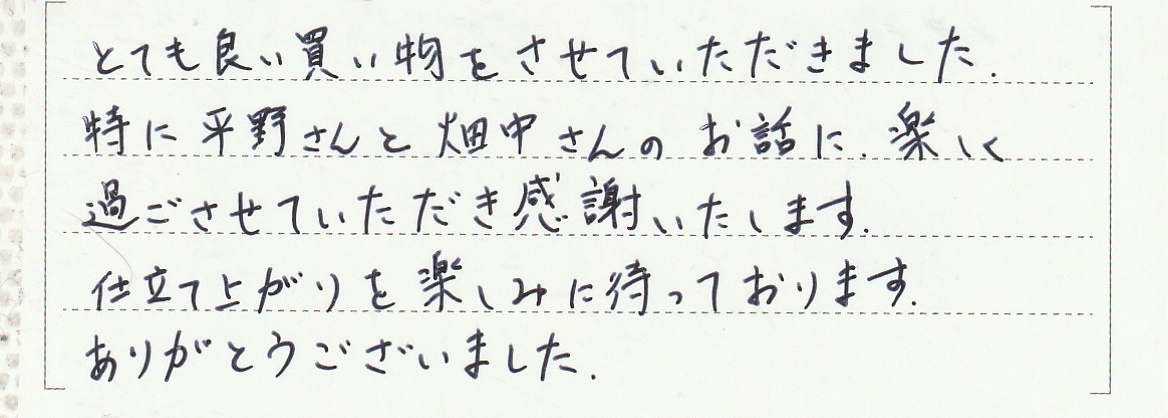 とても良い買い物をさせていただきました.
特に平野さんと畑中さんのお話に.楽しく
過ごさせていただき感謝いたします.
仕立て上がりを楽しみに待っております.
ありがとうございました.